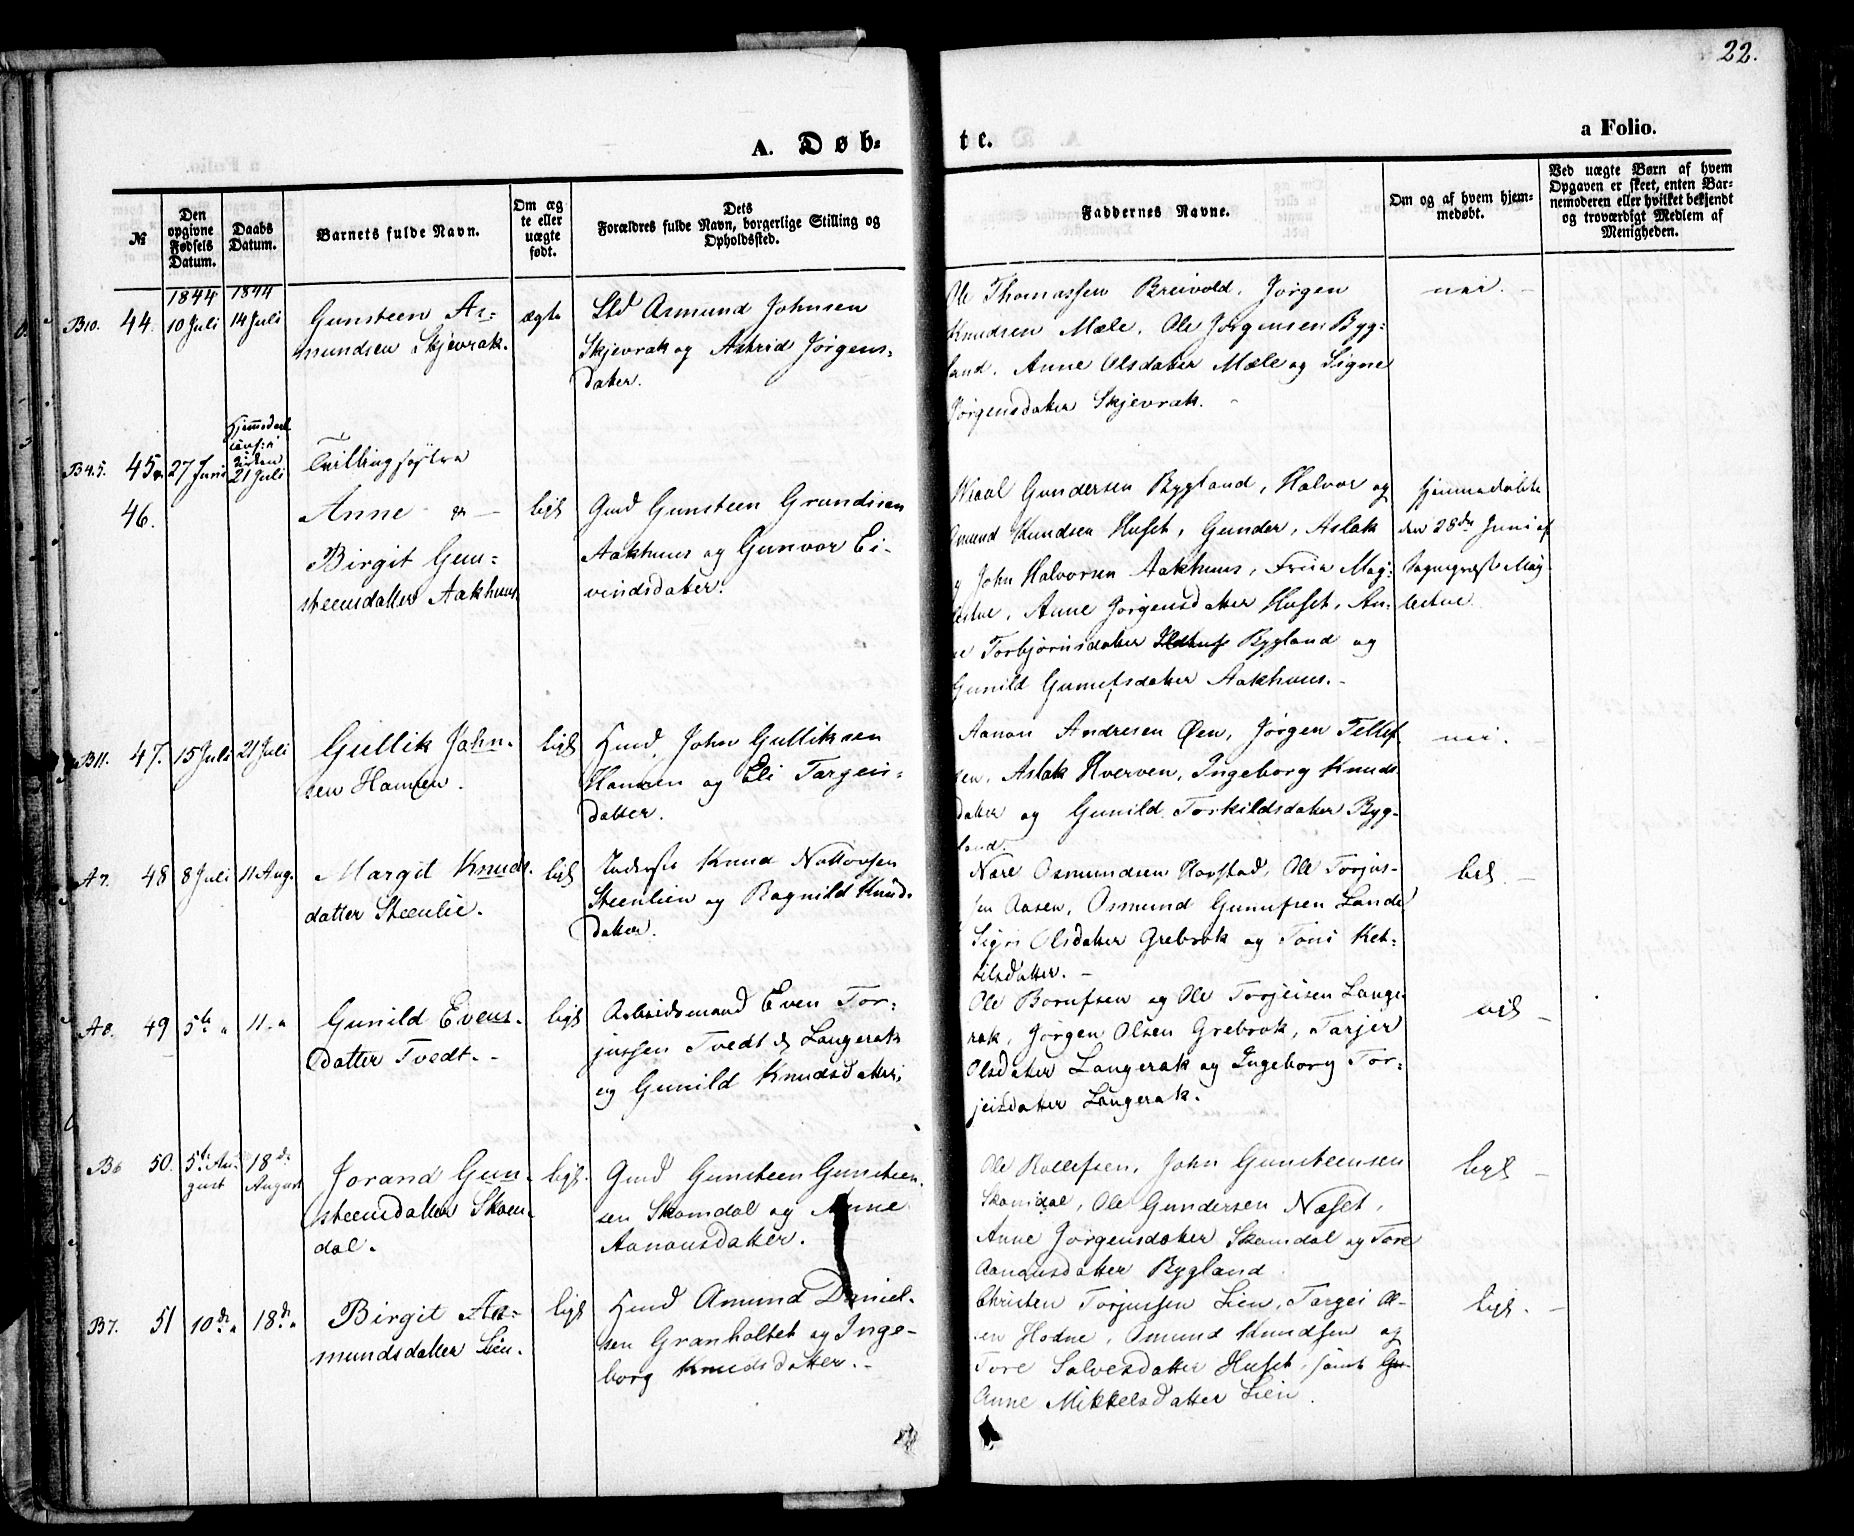 22.
A. Døb-
te.
a Folio.
№
Den opgivne Fødsels Datum.
Daabs Datum.
Barnets fulde Navn.
Om ægte eller uægte født.
Dets Forældres fulde Navn, borgerlige Stilling og Opholdssted.
Faddernes Navne.
Om og af hvem hjemmedøbt.
Ved uægte Børn af hvem Opgaven er skeet, enten Barnemoderen eller hvilket bekjendt og troværdigt Medlem af Menigheden.
1844 1844
B10. 44. 10 Juli 14 Juli
Gunsteen As-
mundsen Skjevrak.
ægte
Asmund Johnsen
Skjevrak og Astrid Jørgens-
datter.
Ole Thomassen Breivold, Jørgen
Knudsen Mæle, Ole Jørgensen Byg-
land, Anne Olsdatter Mæle og Signe
Jørgensdatter Skjevrak. -
nei. -
B4.5. 45. 27 Juni
21 Juli
46.
Tvillingsøstre
Anne og -
Birgit Gun-
steensdatter Aakhuus
ligs
Gmd Gunsteen
Aakhuus og Gunvor Ei-
vindsdatter.
Gundersen Bygland, Halvor og
Knudsen Huset, Gunder, Aslak
og John Halvorsen Aakhuus, Frue Mag-
lestue, Anne Jørgensdatter Huset, An-
ne Torbjørnsdatter Bygland og
Gunild Gunufsdatter Aakhuus. -
hjemmedøbte
den 28de Juni af
Sognepræst Mag-
lestue.
B11. 47. 15 Juli 21 Juli
Gullik John-
sen Hamren.
ligs
Huusmd, John Gulliksen
Hamren og Eli Targeis-
datter.
Aanon Andresen Øen, Jørgen Tellef-
sen, Aslak Hverven, Ingeborg Knuds-
datter og Gunild Torkildsdatter Byg-
land.
nei. -
A7. 48 8 Juli 11 Aug.
Margit Knuds-
datter Steenlie.
ligs
Inderst Knud Nottovsen
Steenlien og Ragnild Knuds-
datter.
Nære Osmundsen Hovstad, Ole Torjus-
sen Aasen, Osmund Gunufsen Lande
Signe Olsdatter Grebrok og Toni Ket-
tilsdatter. -
ligs. -
A8. 49 5te " 11. "
Gunild Evens-
datter Tvedt. -
ligs
Arbeidsmand Even Tor-
jussen Tvedt Langerak
og Gunild Knudsdatter.
Ole Borufsen og Ole Torjeisen Lange-
rak, Jørgen Olsen Grebrok, Tarjer
Olsdatter Langerak og Ingeborg Tor-
jeisdatter Langerak.
B6 50. 5te Au-
gust
18de
August
Jorand Gun-
steensdatter Skom-
dal.
ligs.
Gmd Gunsteen Gunsteen-
sen Skomdal og Anne
Aanonsdatter.
Ole Rollefsen, John Gunsteensen
Skomdal, Ole Gundersen Næset,
Anne Jørgensdatter Skomdal og Tore
Aanonsdatter Bygland
ligs -
B7. 51 10de " 18de "
Birgit As-
mundsdatter Lien.
ligs
Asmund Daniel-
sen Granholtet og Inge-
borg Knudsdatter. -
Christen Torjussen Lien, Targei Ol-
sen Hodne, Osmund Knudsen og
Tore Salvesdatter Huset, samt
Anne Mikkelsdatter Lien.
ligs. -